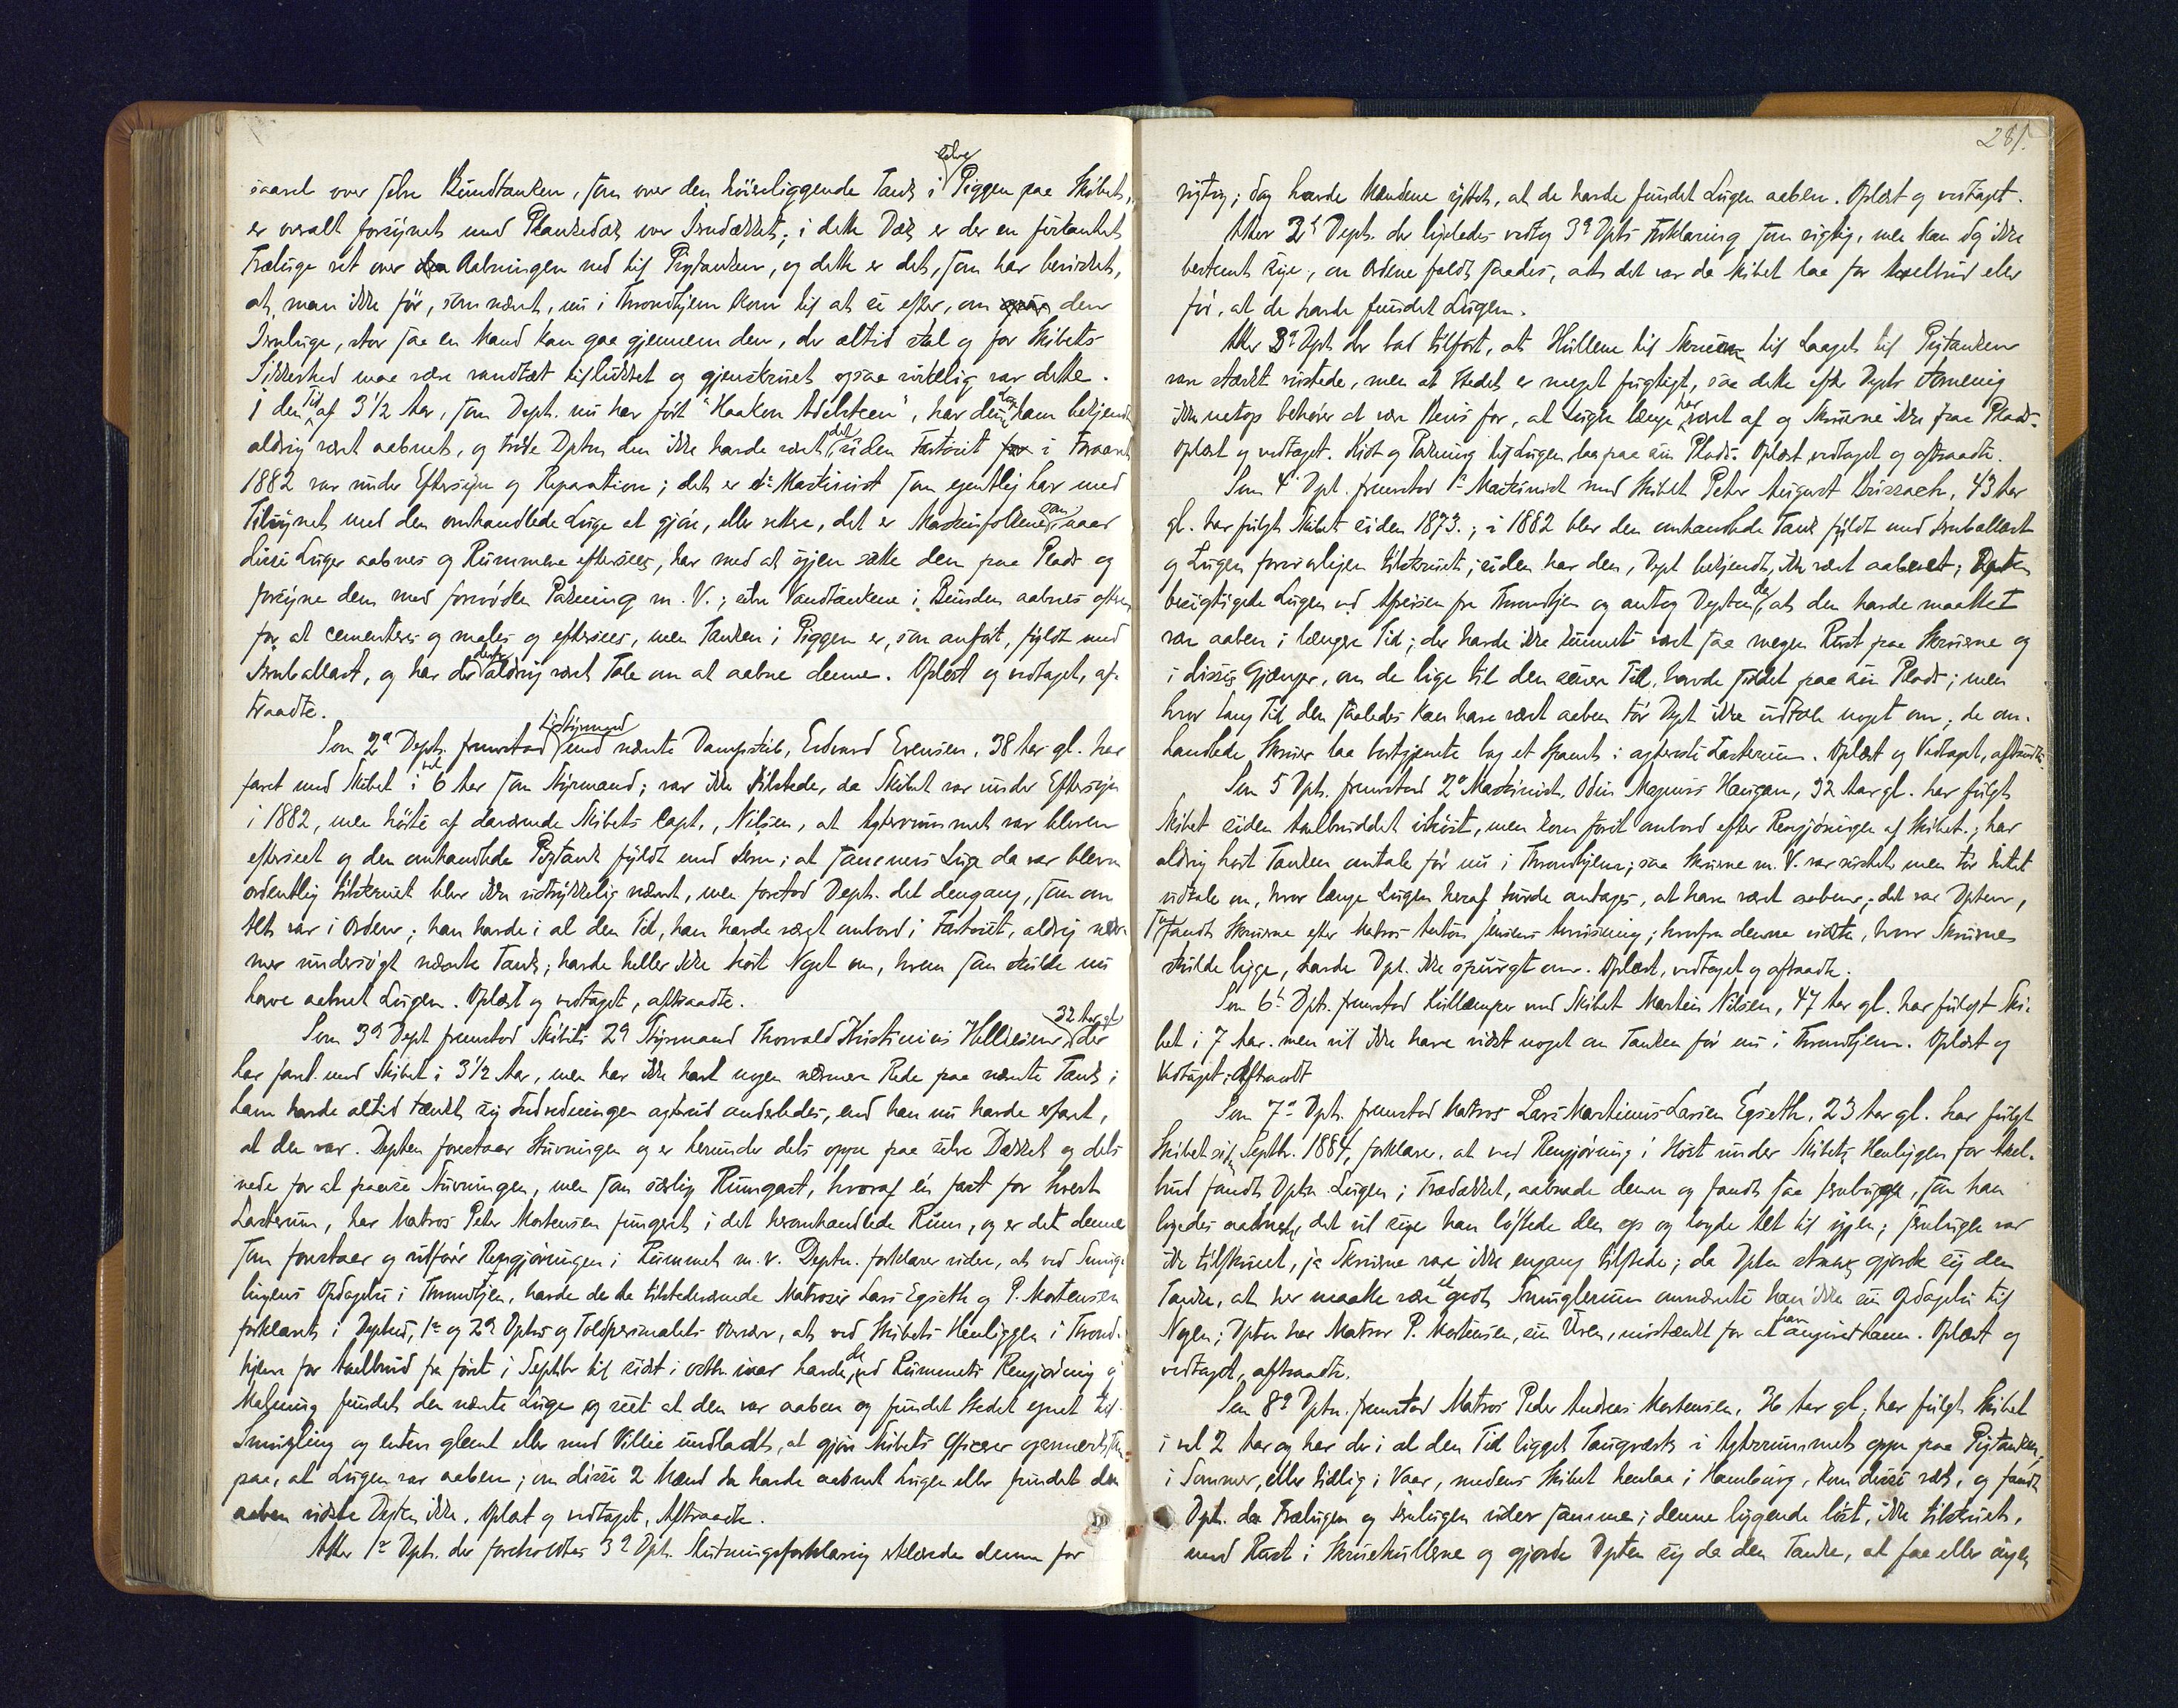 saavel over selve Bundtanken, som over den höieliggende Tank i selve Piggen paa Skibet,
er overalt forsynet med Plankedæk over Jerndækket; i dette Dæk er der en firkantet
Træluge ret over den Aabningen ned til Pigtanken, og dette er det, som har bevirket,
at man ikke för, som nævnt, nu i Throndhjem kom til at se efter, om den
Jernluge, stor saa en Mand kan gaa gjennem den, der altid skal og for Skibets
Sikkerhed maa være vandtæt tillukket og gjenskruet ogsaa virkelig var dette.
I den Tid af 3½ Aar, som Dept. nu har fört "Haakon Adelsteen", har den ham bekjendt
aldrig været aabnet, og troede Depten den ikke havde været det, siden Fartöiet for i Foraaret
1882 var under Eftersyn og Reparation; det er 1ste Maskinist som egentlig har med
Tilsynet med den omhandlede Luge at gjöre, eller rettere, det er Maskinfolkene som, naar
disse Luger aabnes og Rummene eftersees, har med at igjen sætte dem paa Plads og
forsyne dem med fornöden Pakning m. V.; selve Vandtankene i Bunden aabnes oftere
for at cementeres og males og eftersees, men Tanken i Piggen er, som anfört, fyldt med
Jernballast, og har der derfor aldrig været Tale om at aabne denne. Oplæst og vedtaget, af-
traadte.
Som 2det Dept. fremstod 1ste Styrmand med nævnte Dampskib, Edvard Evensen, 38 Aar gl. har
faret med Skibet i vel 6 Aar som Styrmand; var ikke tilstede, da Skibet var under Eftersyn
i 1882, men hörte af daværende Skibets Capt., Nilsen, at Agterrummet var bleven
efterseet og den omhandlede Pigtank fyldt med Jern; at sammes Luge da var bleven
ordentlig tilskruet blev ikke udtrykkelig nævnt, men forstod Dept. det dengang, som om
Alt var i Orden; han havde i al den Tid, han havde været ombord i Fartöiet, aldrig nær-
mer undersögt nævnte Tank; havde heller ikke hört Noget om, hvem som skulde nu
have aabnet Lugen. Oplæst og vedtaget, aftraadte.
Som 3die Dept fremstod Skibets 2den Styrmand Thorvald Kristinius Helliesen 32 Aar gl. der
har faret med Skibet i 3½ Aar, men har ikke havt nogen nærmere Rede paa nævnte Tank;
han havde altid tænkt sig Indredningen agterud anderledes, end han nu havde erfaret,
at den var. Depten forestaar Stuvningen og er herunder dels oppe paa selve Dækket og dels
nede for at paase Stuvningen, men som særlig Rumgast, hvoraf én fast for hvert
Lasterum, har Matros Peter Mortensen fungeret i det heromhandlede Rum, og er det denne
som forestaar og udförer Rengjöringen i Rummet m. v. Depten. forklarer videre, at ved Smug-
lingens Opdagelse i Throndhjem, havde de da tilstedeværende Matroser Lars Egseth og P. Mortensen
forklaret i Deptens, 1ste og 2den Deptes og Toldpersonalets Overvær, at ved Skibets Henliggen i Thrond-
hjem for Axelbrud fra först i Septbr til sidst i Octbr. ivaar havde de ved Rummets Rengjöring og
Malning fundet den nævnte Luge og seet at den var aaben og fundet Stedet egnet til
Smugling og enten glemt eller med Villie undladt, at gjöre Skibets Officerer opmærksom
paa, at Lugen var aaben; om disse 2 Mænd da havde aabnet Lugen eller fundet den
aaben vidste Depten ikke. Oplæst og vedtaget, Aftraadte.
Atter 1ste Dept. der foreholdtes 3die Dpt. Slutningsforklaring erklærede denne for
281.
rigtig; dog havde Mændene yttret, at de havde fundet Lugen aaben. Oplæst og vedtaget.
Atter 2det Dept. der ligeledes vedtog 3die Dpts Forklaring som rigtig, men kan dog ikke
bestemt sige, om Ordene faldt saaledes, at det var da Skibet laa for Axelbrud eller
för, at de havde fundet Lugen.
Atter 3die Dpt. der bad tilfört, at Hullene til Skruerne til Laaget til Pigtanken
var stærkt rustede, men at Stedet er meget fugtigt, saa dette efter Depts Formening
ikke netop behöver at være Bevis for, at Lugen længe har været af og Skruerne ikke paa Plads.
Oplæst og vedtaget. Kist og Pakning til Lugen laa paa sin Plads. Oplæst, vedtaget og aftraadte.
Som 4de Dpt. fremstod 1ste Maskinist med Skibet Peter August Brissach, 43 Aar
gl. har fulgt Skibet siden 1873.; i 1882 blev den omhandlede Tank fyldt med Jernballast
og Lugen forsvarligen tilskruet; siden har den, Dept bekjendt, ikke været aabnet; Depten
besigtigede Lugen ved Afreisen fra Throndhjem og antog Depten da, at den havde maattet
være aaben i længere Tid; der havde ikke kunnet været saa megen Rust paa Skruerne og
i disses Gjænger, om de lige til den senere Tid, havde siddet paa sin Plads; men
hvor lang Tid den saaledes kan have været aaben tör Dept ikke udtale noget om; de om-
handlede Skruer laa bortgjemte bag et Spant i agterste Lasterum. Oplæst og Vedtaget, aftraadte.
Som 5 Dpt. fremstod 2den Maskinist, Odin Magnus Haugan, 32 Aar gl. har fulgt
Skibet siden Axelbruddet ihöst, men kom först ombord efter Rengjöringen af Skibet.; har
aldrig hört Tanken omtale för nu i Throndhjem; saa Skruerne m. V. var rustet men tör Intet
udtale om, hvor længe Lugen heraf turde antages, at have været aaben; det var Depten,
som fandt Skruerne efter Matros Anton Jensens Anvisning; hvorfra denne vidste, hvor Skruerne
skulde ligge, havde Dpt. ikke spurgt om. Oplæst, vedtaget og aftraadte.
Som 6te Dpt. fremstod Kullemper med Skibet Martin Nilsen, 47 Aar gl. har fulgt Ski-
bet i 7 Aar. men vil ikke have vidst noget om Tanken för nu i Throndhjem. Oplæst og
Vedtaget; Aftraadt
Som 7de Dpt. fremstod Matros Lars Martinus Larsen Egseth, 23 Aar gl. har fulgt
Skibet siden Septbr. 1884, forklarer, at ved Rengjöring i Höst under Skibets Henliggen for Axel-
brud fandt Depten Lugen i Trædækket, aabnede denne og fandt saa Jernlugen, som han
ligeledes aabnede, det vil sige han löftede den op og lagde Alt til igjen; Jernlugen var
ikke tilskruet, ja Skruerne var ikke engang tilstede; da Depten strax gjorde sig den
Tanke, at her maatte være et godt Smuglerum omnævnte han ikke sin Opdagelse til
Nogen; Depten har Matros P. Mortensen, sin Uven, mistænkt for at have angivet ham. Oplæst og
vedtaget, aftraadte.
Som 8de Dptn. fremstod Matros Peder Andreas Mortensen, 36 Aar gl; har fulgt Skibet
i vel 2 Aar og har der i al den Tid ligget Taugværk i Agterrummet oppe paa Pigtanken,
i Sommer, eller tidlig i Vaar, medens Skibet henlaa i Hamburg, kom disse væk, og fandt
Dpt. da Trælugen og Jernlugen under samme; denne liggende löst, ikke tilskruet,
med Rust i Skruehullerne og gjorde Depten sig da den Tanke, at faa eller ingen